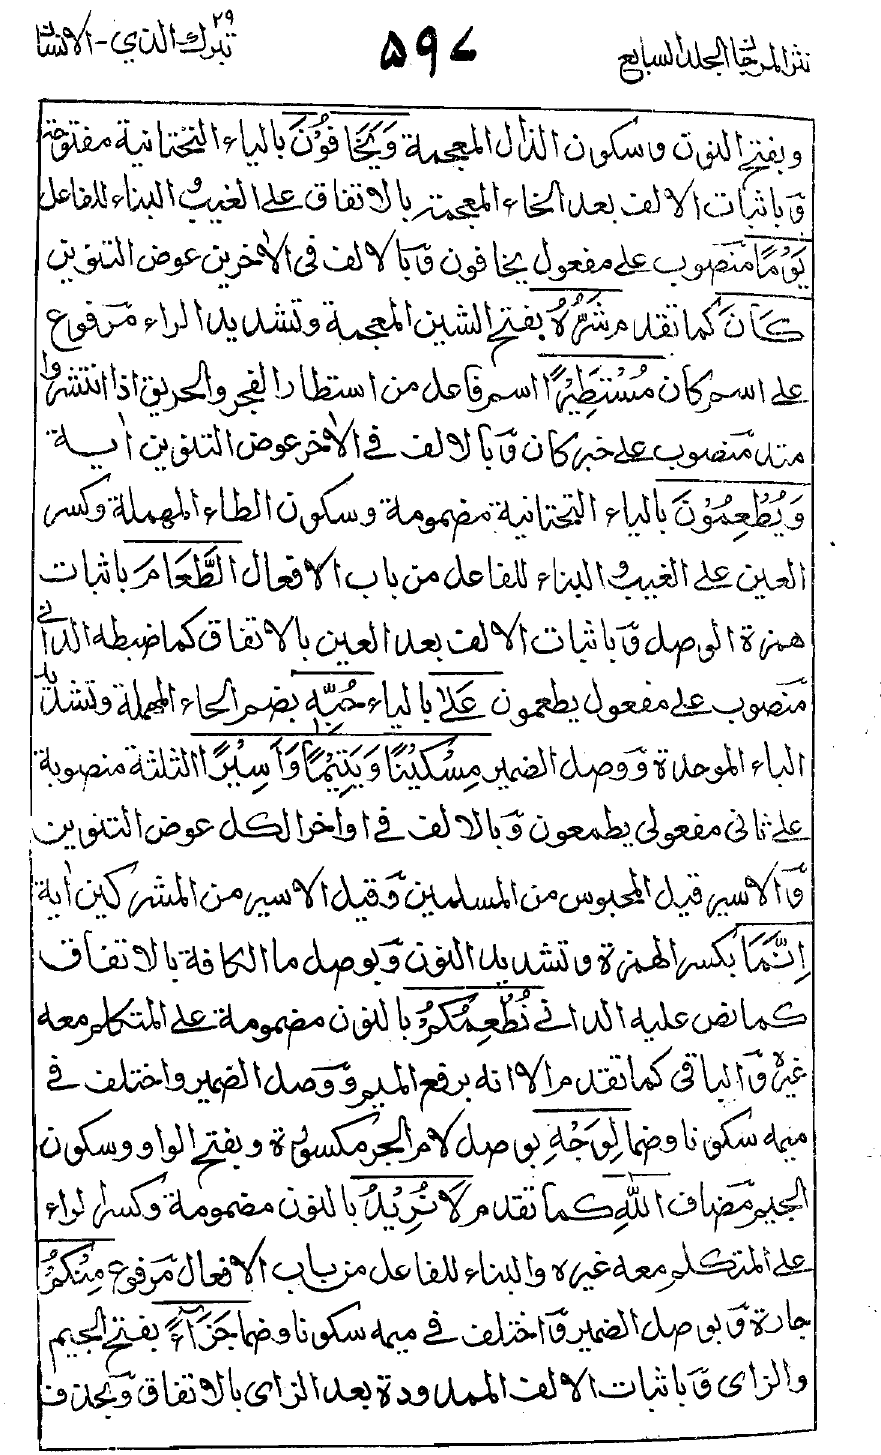 نثر المرجان الجلد السابع ۵۹۷ تبرك الذي ۲۹ - الانسان
وبفتح النون وسكون الذال المعجمة وَيَخَافُوْنَ بالياء التحتانية مفتوحة
وّباثبات الالف بعد الخاء المعجمة بالاتفاق على الغيب والبناء للفاعل
يَوْمًا منصوب على مفعول يخافون وّبالالف فى الاٰخرين عوض التنوين
كَانَ كما تقدم شَرُّهٗ بفتح الشين المعجمة وتشديد الراء مرفوع
على اسم كان مُسْتَطِيْرًا اسم فاعل من استطار الفجر والحريق اذا انتشروا
متد منصوب على خبر كان وّبالالف فى الاٰخر عوض التنوين اٰية
وَيُطْعِمُوْنَ بالياء التحتانية مضمومة وسكون الطاء المهملة وكسر
العين على الغيب والبناء للفاعل من باب الافعال الطَّعَامَ باثبات
همزة الوصل وّباثبات الالف بعد العين بالاتفاق كما ضبطه الدانى
منصوب على مفعول يطعمون عَلٰى بالياء حُبِّهٖ بضم الحاء المهملة وتشديد
الباء الموحدة ووصل الضمير مِسْكِيْنًا وَيَتِيْمًا وَاَسِيْرًا الثلثة منصوبة
على ثانى مفعولى يطمعون وّبالالف فى اواخر الكل عوض التنوين
وّالاسير قيل المحبوس من المسلمين وّقيل الاسير من المشركين اٰية
اِنَّمَا بكسر الهمزة وتشديد النون وّبوصل ما الكافة بالاتفاق
كما نص عليه الدانى نُطْعِمُكُمْ بالنون مضمومة على المتكلم معه
غيره وّالباقى كما تقدم الا انه برفع الميم وّوصل الضمير واختلف فى
ميمه سكونا وضما لِوَجْهِ بوصل لام الجر مكسورة وبفتح الواو وسكون
الجيم مضاف اللّٰهِ كما تقدم لَا نُرِيْدُ بالنون مضمومة وكسر الراء
على المتكلم معه غيره والبناء للفاعل من باب الافعال مرفوع مِنْكُمْ
جارة وّبوصل الضمير وّاختلف فى ميمه سكونا وضما جَزَآءً بفتح الجيم
والزاى وّباثبات الالف الممدودة بعد الزاى بالاتفاق وّبحذف